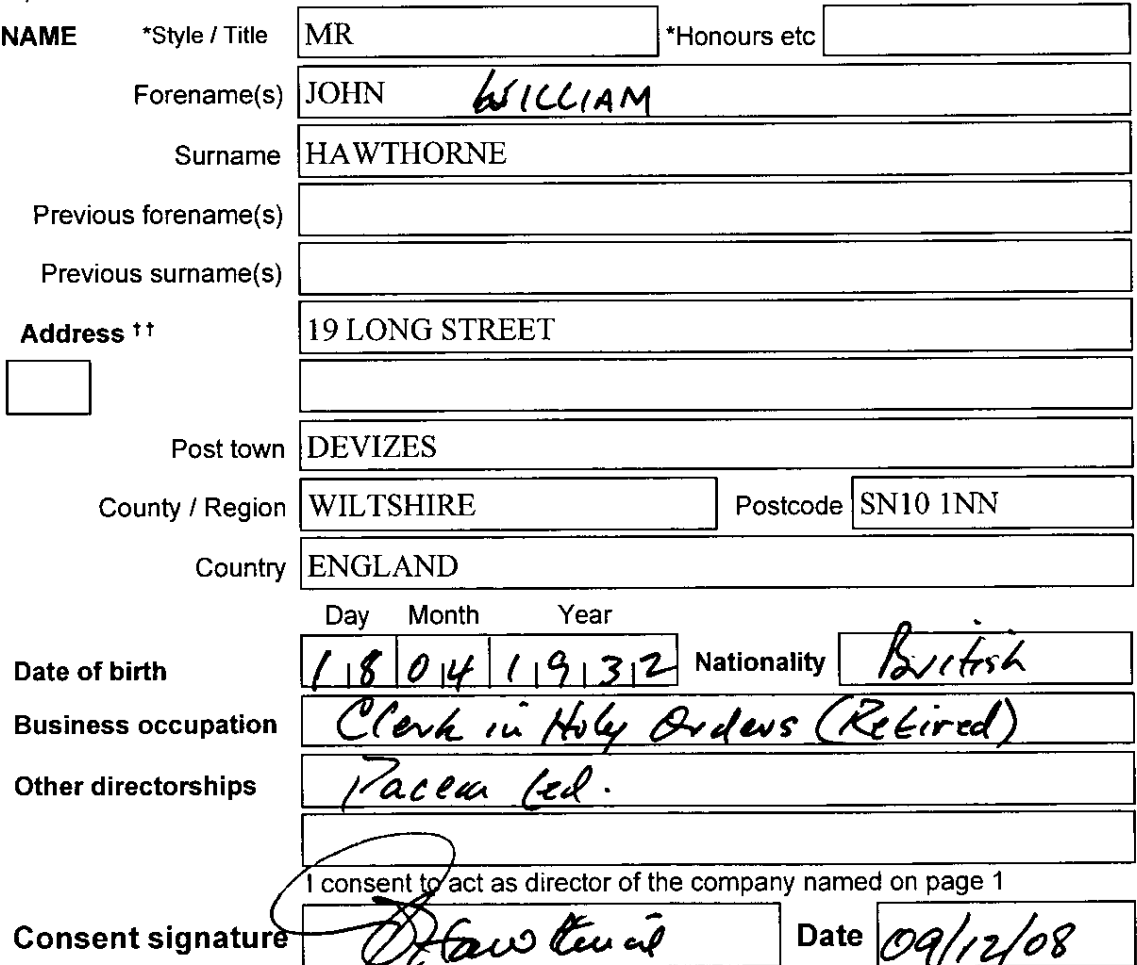 NAME *Style / Title MR *Honours etc
Forename(s) JOHN WILLIAM
Surname HAWTHORNE
Previous forename(s)
Previous surname(s)
Address †† 19 LONG STREET
Post town DEVIZES
County / Region WILTSHIRE Postcode SN10 1NN
Country ENGLAND
Day Month Year
Date of birth 18 04 1932 Nationality British
Business occupation Clerk in Holy Orders (Retired)
Other directorships Pacem Ltd.
I consent to act as director of the company named on page 1
Consent signature Date 09/12/08